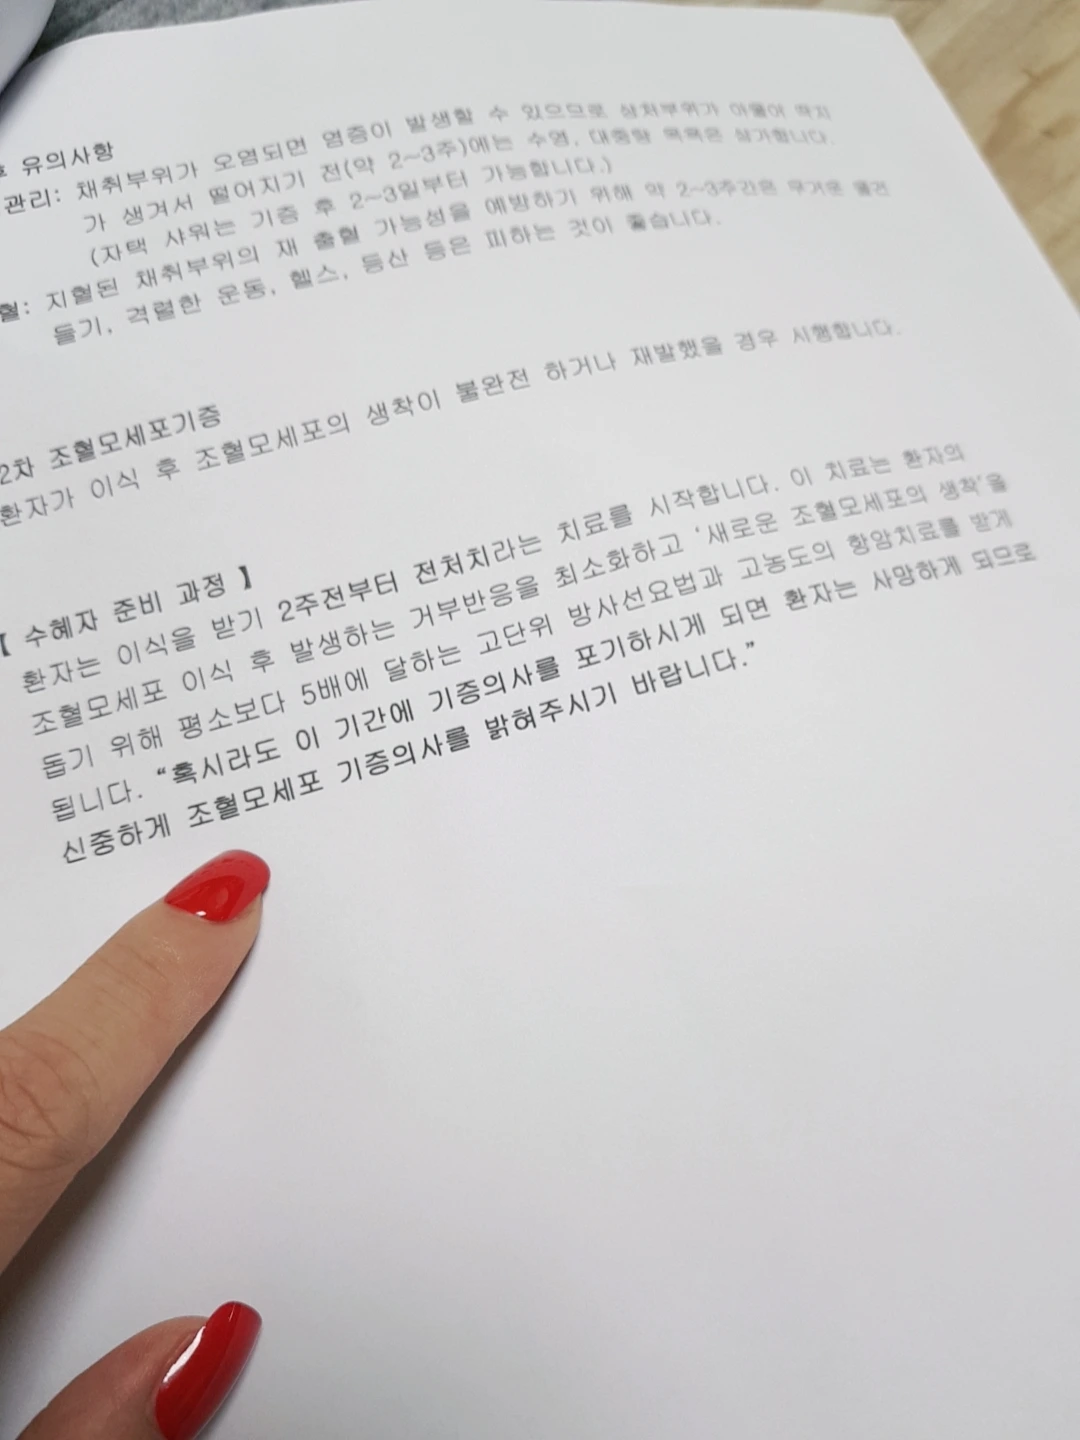 후 유의사항
관리: 채취부위가 오염되면 염증이 발생할 수 있으므로 상처부위가 아물어 딱지
가 생겨서 떨어지기 전(약 2~3주)에는 수영, 대중탕 목욕은 삼가합니다.
(자택 샤워는 기증 후 2~3일부터 가능합니다.)
혈: 지혈된 채취부위의 재 출혈 가능성을 예방하기 위해 약 2~3주간은 무거운 물건
들기, 격렬한 운동, 헬스, 등산 등은 피하는 것이 좋습니다.
2차 조혈모세포기증
환자가 이식 후 조혈모세포의 생착이 불완전 하거나 재발했을 경우 시행합니다.
【 수혜자 준비 과정 】
환자는 이식을 받기 2주전부터 전처치라는 치료를 시작합니다. 이 치료는 환자의
조혈모세포 이식 후 발생하는 거부반응을 최소화하고 '새로운 조혈모세포의 생착'을
돕기 위해 평소보다 5배에 달하는 고단위 방사선요법과 고농도의 항암치료를 받게
됩니다. “혹시라도 이 기간에 기증의사를 포기하시게 되면 환자는 사망하게 되므로
신중하게 조혈모세포 기증의사를 밝혀주시기 바랍니다.”